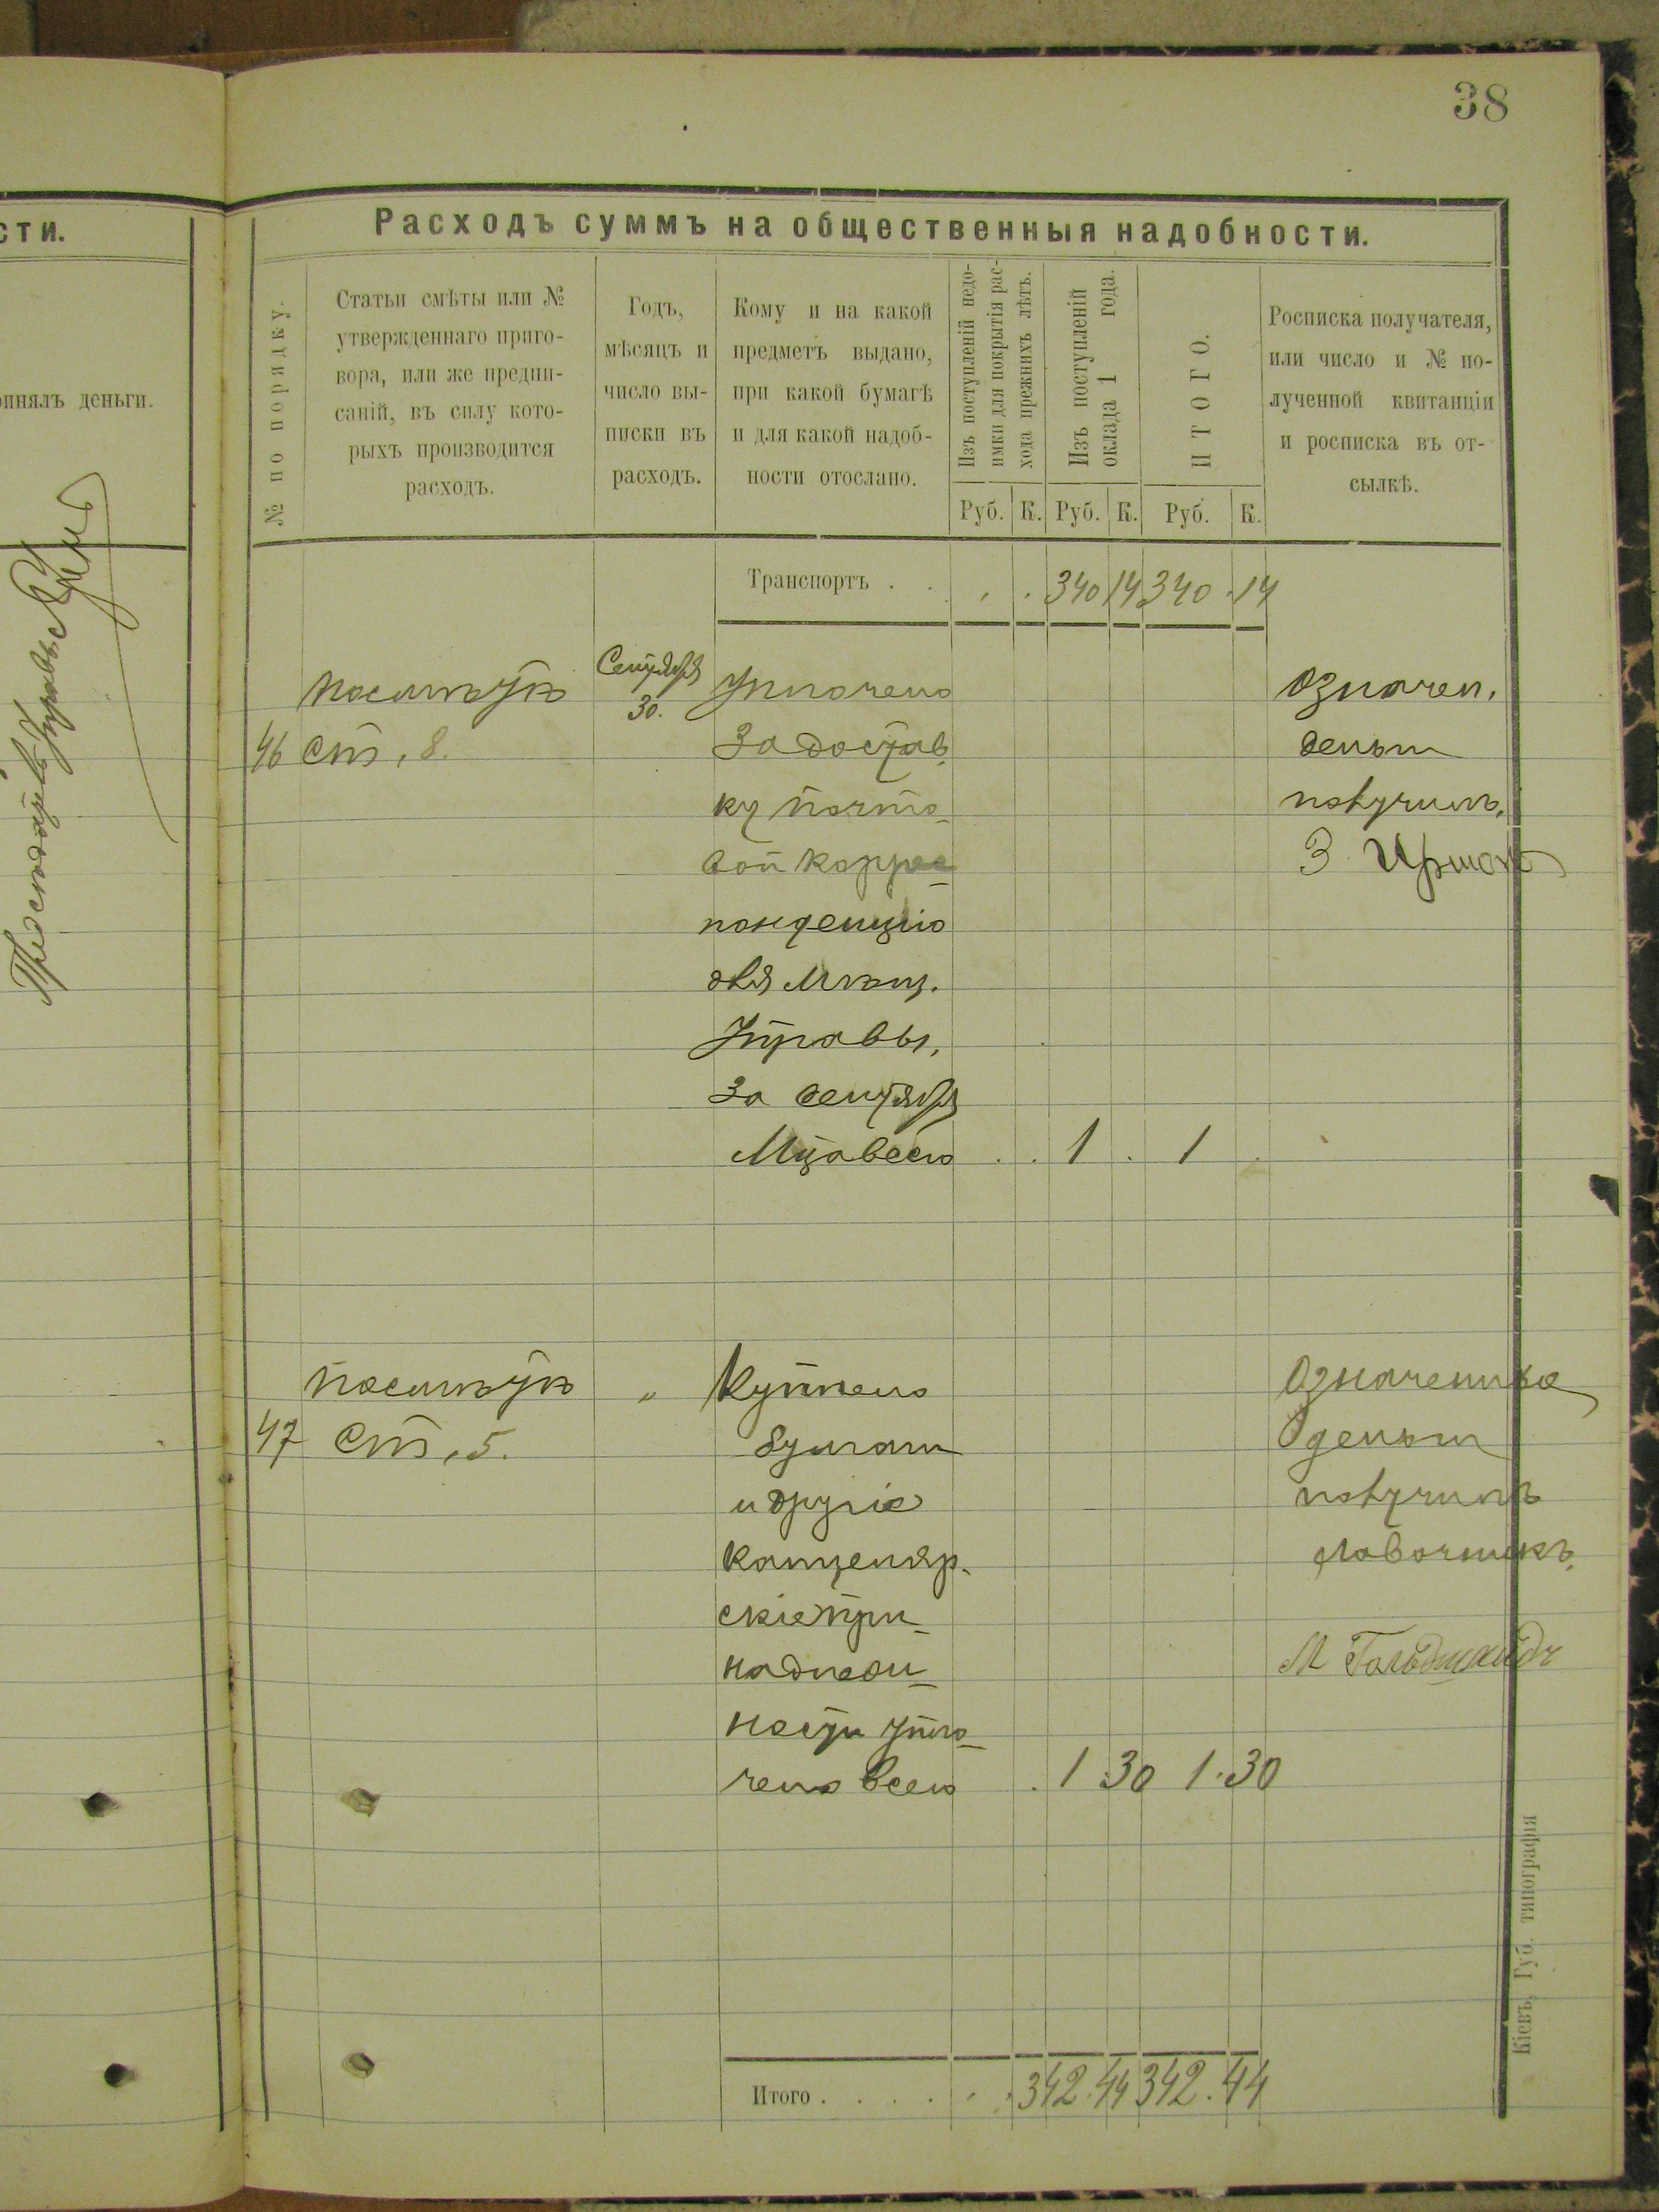 38
сти.
Расходъ суммъ на общественныя надобности.
№ по порядку.
Статьи смѣты или №
утвержденнаго приго-
вора, или же предпи-
саній, въ силу кото-
рыхъ производится
расходъ.
Годъ,
мѣсяцъ и
число вы-
писки въ
расходъ.
Кому и на какой
предметъ выдано,
при какой бумагѣ
и для какой надоб-
ности отослано.
Изъ поступленій недо-
имки для покрытія рас-
хода прежнихъ лѣтъ.
Изъ поступленій
оклада 1 года.
ИТОГО.
Росписка получателя,
или число и № по-
лученной квитанціи
и росписка въ от-
сылкѣ.
Руб. К. Руб. К. Руб. К.
инялъ деньги.
Транспортъ . . 340 14 340 14
Сентября
30.
По смѣтѣ
46 ст. 8.
Уплочено
за достав
ку почто-
вой коррес-
понденцію
для Мѣщ.
Управы,
за сентябрь
М-цъ всего . . 1 . 1 .
Означен.
деньги
получилъ.
З.
По смѣтѣ
47 ст. 5.
„
Куплено
бумаги
и другіе
канцеляр-
скіе при-
надлеж-
ности упло-
чено всего . 1 30 1.30
Означенные
деньги
получилъ
лавочникъ.
М Гольдшмидъ
Итого . . . . . . 342.44 342.44
Кіевъ, Губ. типографія